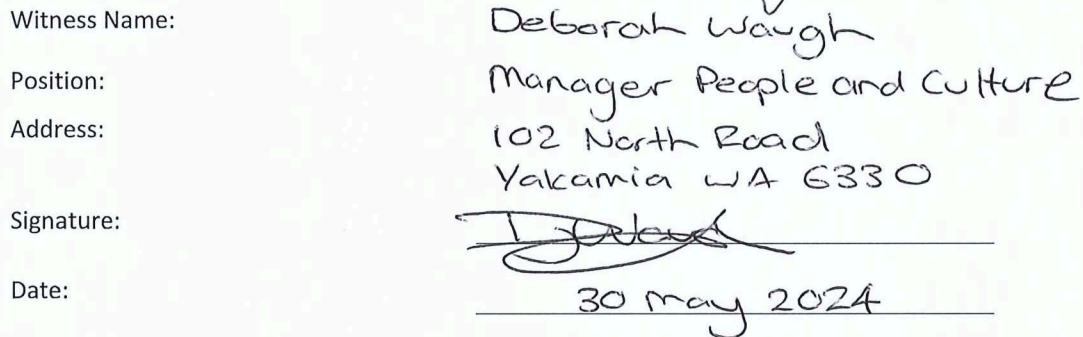 Witness Name: Deborah Waugh
Position: Manager People and Culture
Address: 102 North Road
Yakamia WA 6330
Signature:
Date: 30 May 2024